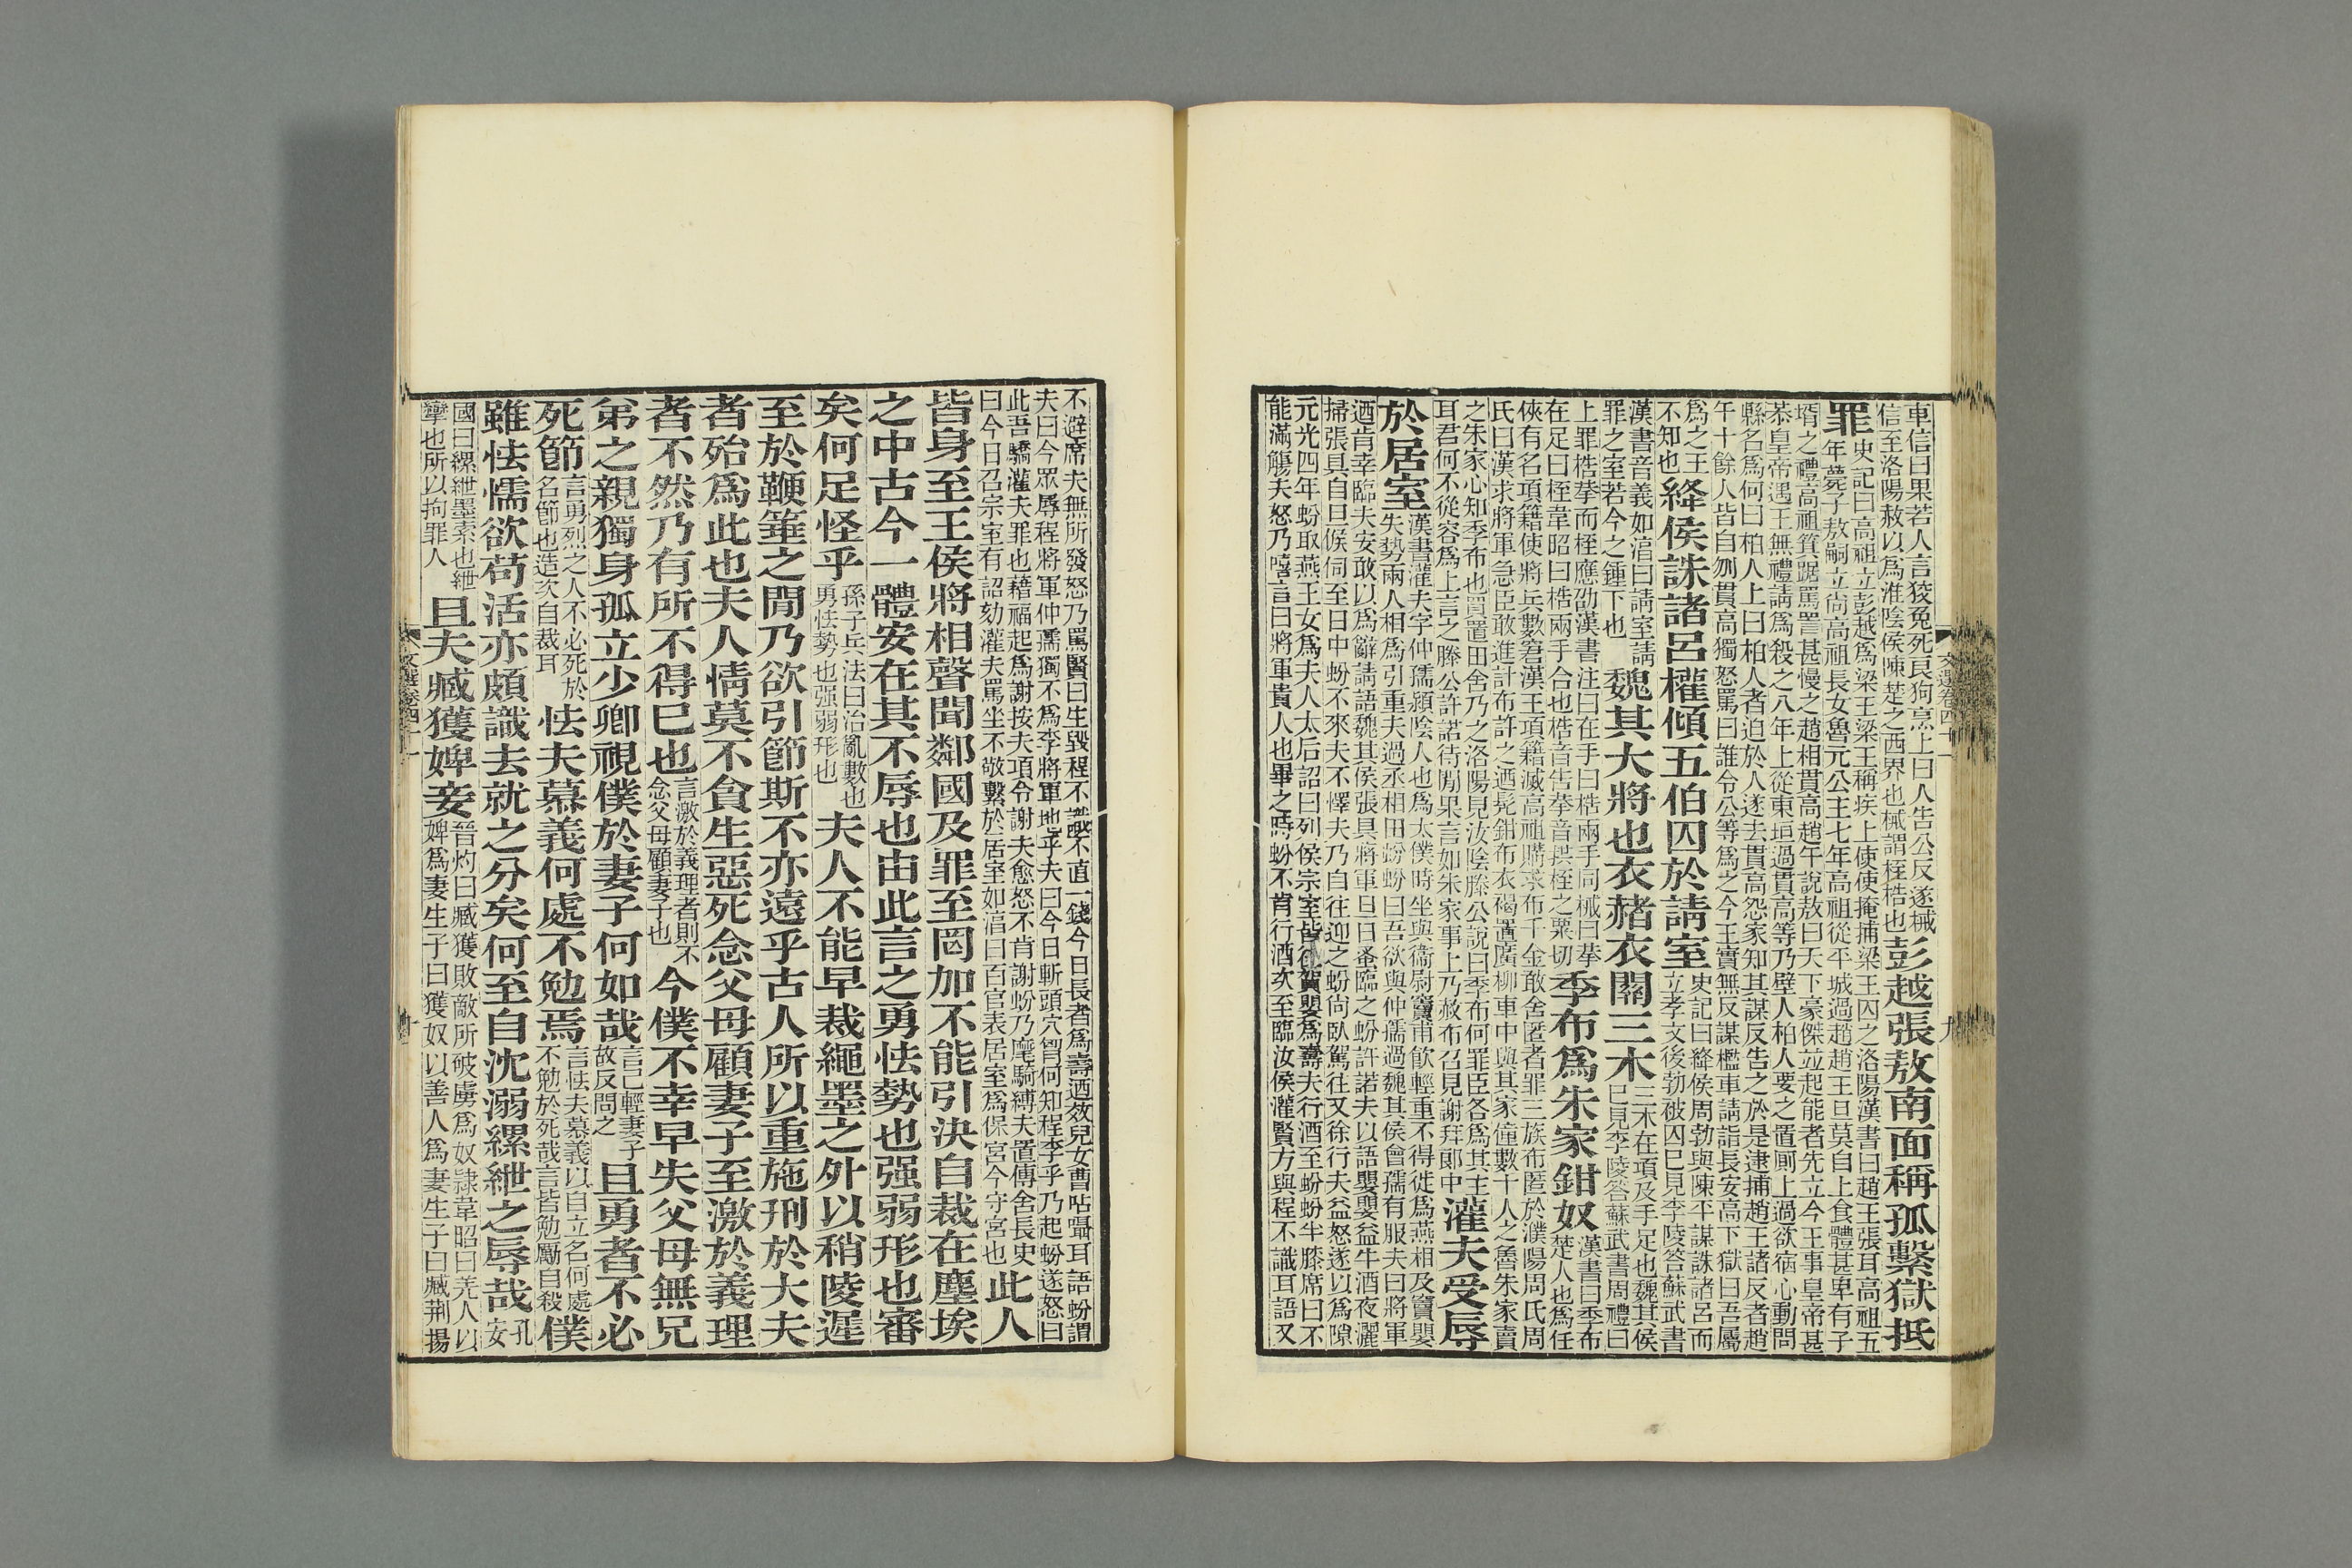 車信曰果若人言狡兔死良狗烹上曰人告公反遂械
信至洛陽赦以爲淮陰侯陳楚之西界也械謂桎梏也
彭越張敖南面稱孤繫獄抵
罪
史記曰高祖立彭越爲梁王梁王稱疾上使使掩捕梁王囚之洛陽漢書曰趙王張耳高祖五
年薨子敖嗣立尚高祖長女魯元公主七年高祖從平城過趙趙王旦莫自上食體甚卑有子
壻之禮高祖箕踞罵詈甚慢之趙相貫高趙午說敖曰天下豪傑並起能者先立今王事皇帝甚
恭皇帝遇王無禮請爲殺之八年上從東垣過貫高等乃壁人柏人要之置廁上過欲宿心動問
縣名爲何曰柏人上曰柏人者迫於人遂去貫高怨家知其謀反告之於是逮捕趙王諸反者趙
午十餘人皆自刎貫高獨怒罵曰誰令公等爲之今王實無反謀檻車請詣長安高下獄曰吾屬
爲之王
不知也
絳侯誅諸呂權傾五伯囚於請室
史記曰絳侯周勃與陳平謀誅諸呂而
立孝文後勃被囚已見李陵答蘇武書
漢書音義如淳曰請室請
罪之室若今之鍾下也
魏其大將也衣赭衣關三木
三木在項及手足也魏其侯
已見李陵答蘇武書周禮曰
上罪梏拲而桎應劭漢書注曰在手曰梏兩手同械曰拲
在足曰桎韋昭曰梏兩手合也梏音告拲音拱桎之栗切
季布爲朱家鉗奴
漢書曰季布
楚人也爲任
俠有名項籍使將兵數窘漢王項籍滅高祖購求布千金敢舍匿者罪三族布匿於濮陽周氏周
氏曰漢求將軍急臣敢進計布許之迺髡鉗布衣褐置廣柳車中與其家僮數十人之魯朱家賣
之朱家心知季布也買置田舍乃之洛陽見汝陰滕公說曰季布何罪臣各爲其主
耳君何不從容爲上言之滕公許諾待閒果言如朱家事上乃赦布召見謝拜郎中
灌夫受辱
於居室
漢書灌夫字仲孺潁陰人也爲太僕時坐與衞尉竇甫飲輕重不得徙爲燕相及竇嬰
失勢兩人相爲引重夫過丞相田蚡蚡曰吾欲與仲孺過魏其侯會孺有服夫曰將軍
迺肯幸臨夫安敢以爲辭請語魏其侯張具將軍旦日蚤臨之蚡許諾夫以語嬰嬰益牛酒夜灑
掃張具自旦候伺至日中蚡不來夫不懌夫乃自往迎之蚡尚臥駕往又徐行夫益怒遂以爲隙
元光四年蚡取燕王女爲夫人太后詔曰列侯宗室皆往賀嬰爲壽夫行酒至蚡蚡半膝席曰不
能滿觴夫怒乃嘻言曰將軍貴人也畢之時蚡不肯行酒次至臨汝侯灌賢方與程不識耳語又
不避席夫無所發怒乃罵賢曰生毀程不識不直一錢今日長者爲壽迺效兒女曹呫囁耳語蚡謂
夫曰今眾辱程將軍仲孺獨不爲李將軍地乎夫曰今日斬頭穴胷何知程李乎乃起蚡遂怒曰
此吾驕灌夫罪也藉福起爲謝按夫項令謝夫愈怒不肯謝蚡乃麾騎縛夫置傳舍長史
曰今日召宗室有詔劾灌夫罵坐不敬繫於居室如淳曰百官表居室爲保宮今守宮也
此人
皆身至王侯將相聲聞鄰國及罪至罔加不能引決自裁在塵埃
之中古今一體安在其不辱也由此言之勇怯勢也强弱形也審
矣何足怪乎
孫子兵法曰治亂數也
勇怯勢也强弱形也
夫人不能早裁繩墨之外以稍陵遲
至於鞭箠之閒乃欲引節斯不亦遠乎古人所以重施刑於大夫
者殆爲此也夫人情莫不貪生惡死念父母顧妻子至激於義理
者不然乃有所不得已也
言激於義理者則不
念父母顧妻子也
今僕不幸早失父母無兄
弟之親獨身孤立少卿視僕於妻子何如哉
言己輕妻子
故反問之
且勇者不必
死節
言勇烈之人不必死於
名節也造次自裁耳
怯夫慕義何處不勉焉
言怯夫慕義以自立名何處
不勉於死哉言皆勉勵自殺
僕
雖怯懦欲苟活亦頗識去就之分矣何至自沈溺縲紲之辱哉
孔
安
國曰縲紲墨索也紲
攣也所以拘罪人
且夫臧獲婢妾
晉灼曰臧獲敗敵所破虜爲奴隸韋昭曰羌人以
婢爲妻生子曰獲奴以善人爲妻生子曰臧荆揚
文選卷四十一
九
文選卷四十一